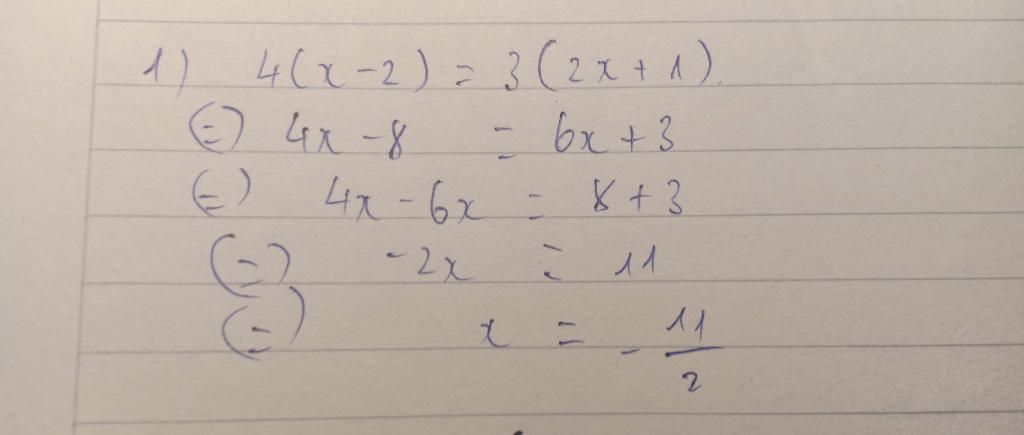 1) 4(x-2) = 3(2x+1)
(=) 4x-8 = 6x+3
(=) 4x-6x = 8+3
(=) -2x = 11
(=) x = -11/2